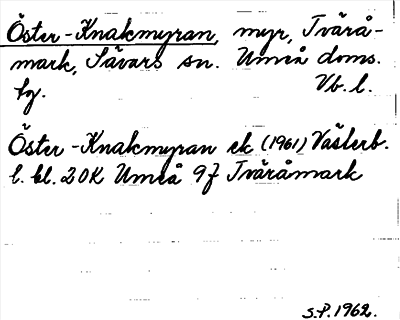 Öster-Knakmyran, myr, Tvärå-
mark, Sävars sn. Umeå doms.
hg. Vb. l.
Öster-Knakmyran ek (1961) Västerb.
l. bl. 20K Umeå 9f Tväråmark
S.P. 1962.